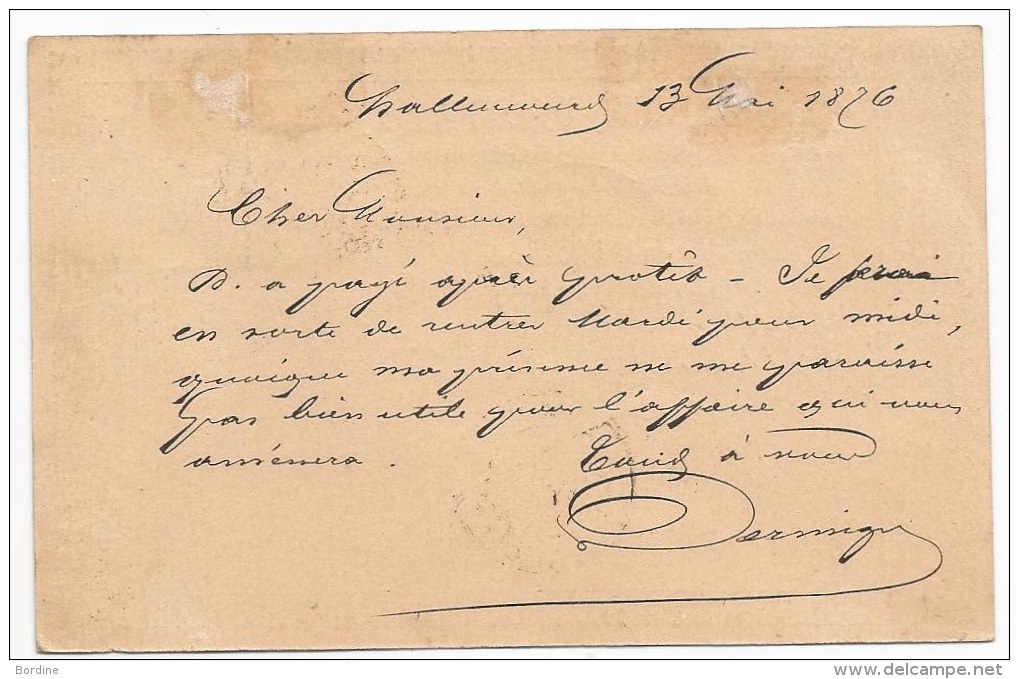 13 Mai 1876
Cher Monsieur,
D. a payé après protêt – Je ferai
en sorte de rentrer Mardi pour midi,
quoique ma présence ne me paraisse
pas bien utile pour l'affaire qui vous
amènera. Tout à vous
Bordine
www.delcampe.net